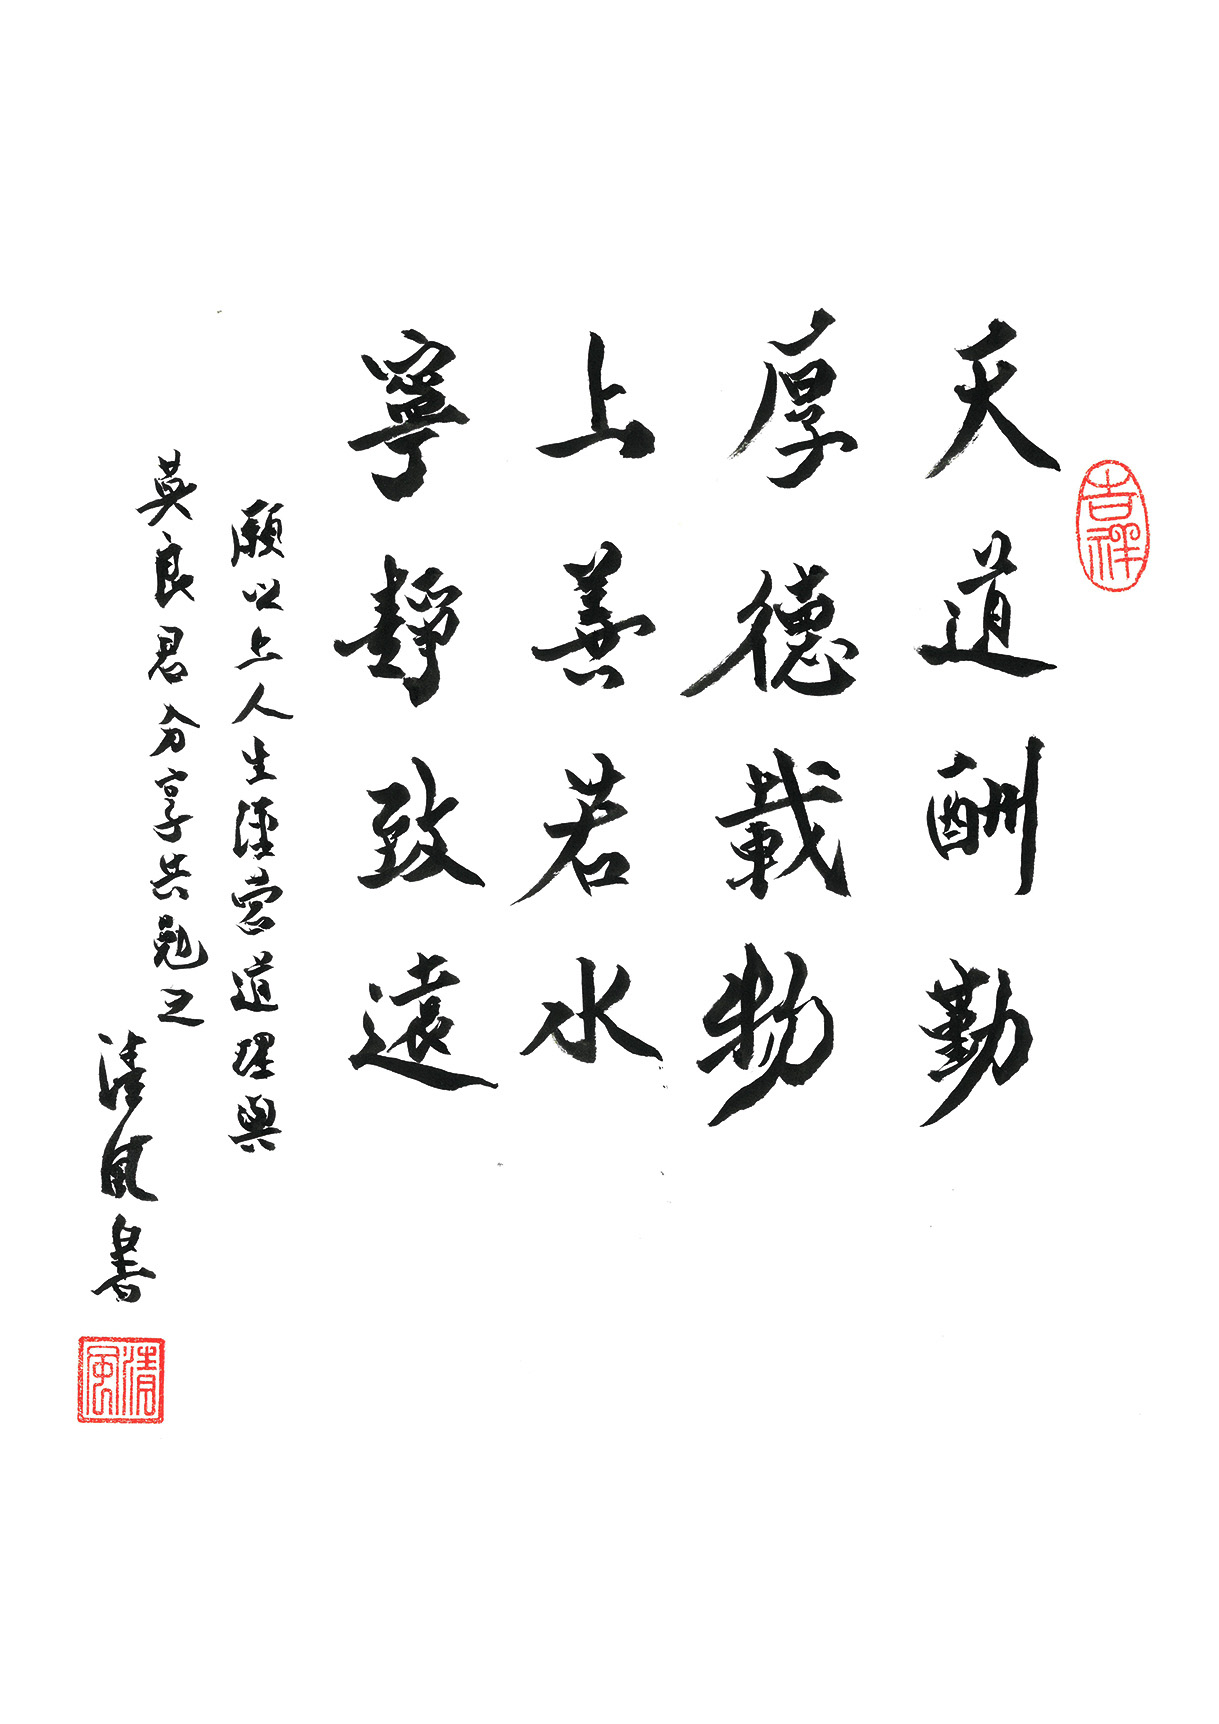 吉祥
天道酬勤
厚德載物
上善若水
寧靜致遠
願以上人生經營道理與
英良君分享共勉之
清風書
清風